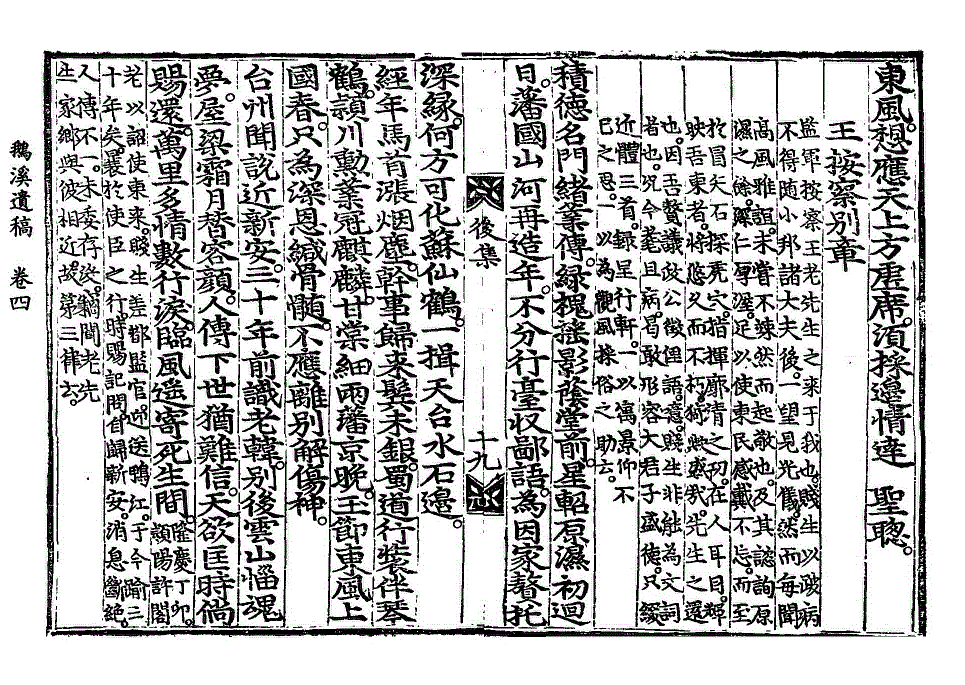 東風想應天上方虛席。須採邊情達 聖聰。
王按察別章
監軍按察王老先生之來于我也。賤生以破病
不得随小邦諸大夫後。一望見光儀。然而每聞
高風雅誼。未嘗不竦然而起敬也。及其諮詢原
濕之餘。深仁厚澤。足以使東民感戴不忘。而至
於冒矢石。探虎穴。指揮廓清之功。在人耳目。輝
映吾東者。將悠久而不朽。猗歟盛哉。先生之還
也。因吾贅議政公徵俚語。噫。賤生非能為文詞
者也。况今耄且病。曷敢形容大君子盛德。只綴
近體三首。錄呈行軒。一以寓景仰不
已之思。一以為觀風採俗之助云。
積德名門緖業傳。綠槐搖影蔭堂前。星軺原濕初迴
日。藩國山河再造年。不分行臺収鄙語。為因家贅托
後集 十九
深緣。何方可化蘇仙鶴。一揖天台水石邊。
經年馬首漲烟塵。幹事歸來鬂未銀。蜀道行裝伴琴
鶴。頴川勳業冠麒麟。甘棠細雨瀋京晚。玉節東風上
國春。只為深恩緘骨髓。不應離別解傷神。
台州聞說近新安。三十年前識老韓。別後雲山惱魂
夢。屋梁霜月替容顔。人傳下世猶難信。天欲匡時倘
賜還。萬里多情數行淚。臨風遥寄死生間。隆慶丁卯。潁陽許閣
老以詔使東來。賤生差都監官。迎送鴨江。于今踰三
十年矣。曩於使臣之行。時賜記問。自歸新安。消息斷絶。
人傳不一。未委存沒。竊聞老先
生家鄉與彼相近。故第三律云。
鵝溪遺稿 卷四